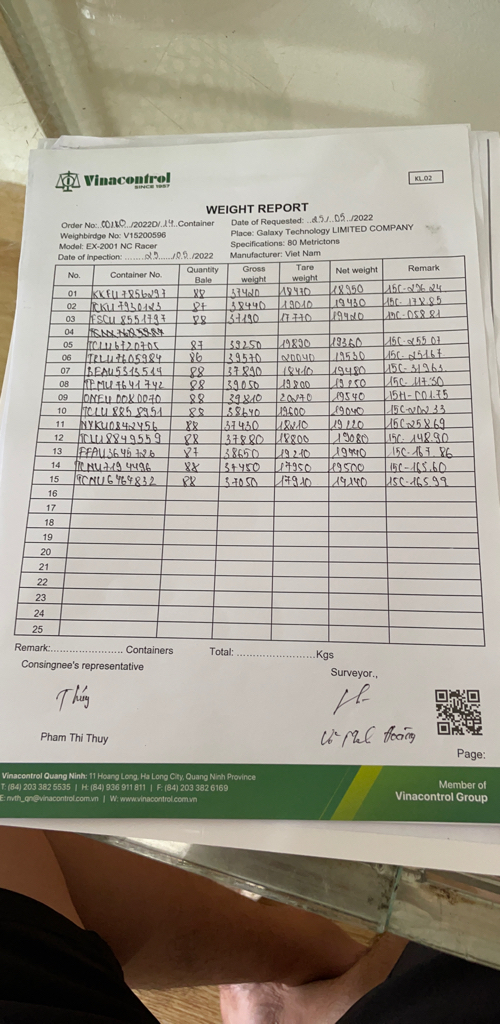 Vinacontrol
SINCE 1957
KL.02
WEIGHT REPORT
Order No: /2022D/.14.Container
Date of Requested: ..25./.05../2022
Weighbirdge No: V15200596
Place: Galaxy Technology LIMITED COMPANY
Model: EX-2001 NC Racer
Specifications: 80 Metrictons
Date of inpection: ........25..../05./2022
Manufacturer: Viet Nam
No. Container No. Quantity Bale Gross weight Tare weight Net weight Remark
01 88 37420 18470 18950
02 87 38440 19010 19430 15C-178.85
03 FSCU 8551797 88 37190 17770 19420 15C-058.81
04
05 TCLU6720705 87 39250 19890 19360 15C-255.07
06 TCLU7605984 86 39570 20040 19530 15C-251.67
07 BEAU5315514 88 37890 18410 19480
08 TEMU7641742 88 39050 19800 19250 15C-117.50
09 ONEU 0080070 88 39810 20270 19540 15H-001.75
10 TCLU 885 8951 88 38640 19600 19040 15C-202 33
11 NYKU0842456 88 37430 18210 15C25869
12 TCLU8849559 88 37880 18800 19080 15C-148.90
13 87 38650 19210 19440 15C-167.86
14 TCNU719 4496 88 37450 17950 19500 15C-165.60
15 TCNU6464832 88 37050 17910 19140 15C-165.99
16
17
18
19
20
21
22
23
24
25
Remark:........................ Containers
Total: ..........................Kgs
Consingnee's representative
Surveyor.,
Thúy
Pham Thi Thuy
Page:
Vinacontrol Quang Ninh: 11 Hoang Long, Ha Long City, Quang Ninh Province
T: (84) 203 382 5535 | H: (84) 936 911 811 | F: (84) 203 382 6169
E: nvth_qn@vinacontrol.com.vn | W: www.vinacontrol.com.vn
Member of
Vinacontrol Group